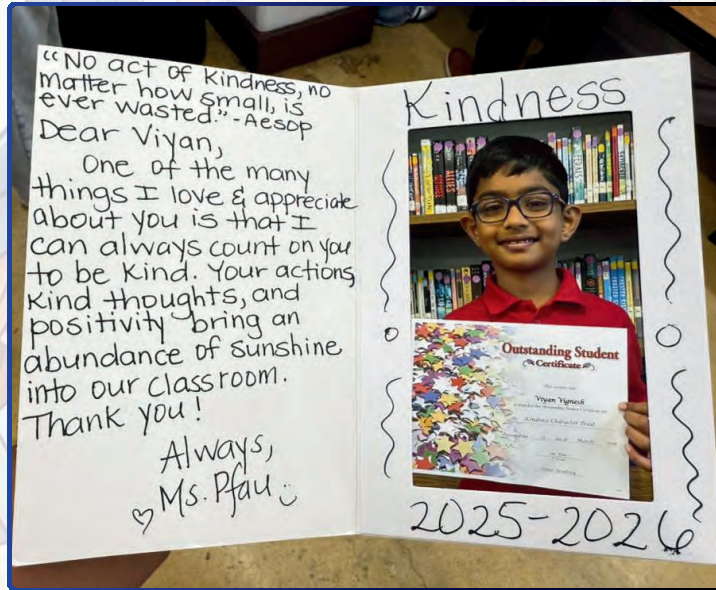 “No act of Kindness, no
matter how small, is
ever wasted.” -Aesop
Dear Viyan,
One of the many
things I love & appreciate
about you is that I
can always count on you
to be Kind. Your actions,
Kind thoughts, and
positivity bring an
abundance of sunshine
into our classroom.
Thank you!
Always,
Ms. Pfau
Kindness
Outstanding Student
Certificate
Viyan Vignesh
Kindness Character Trait
2025-2026